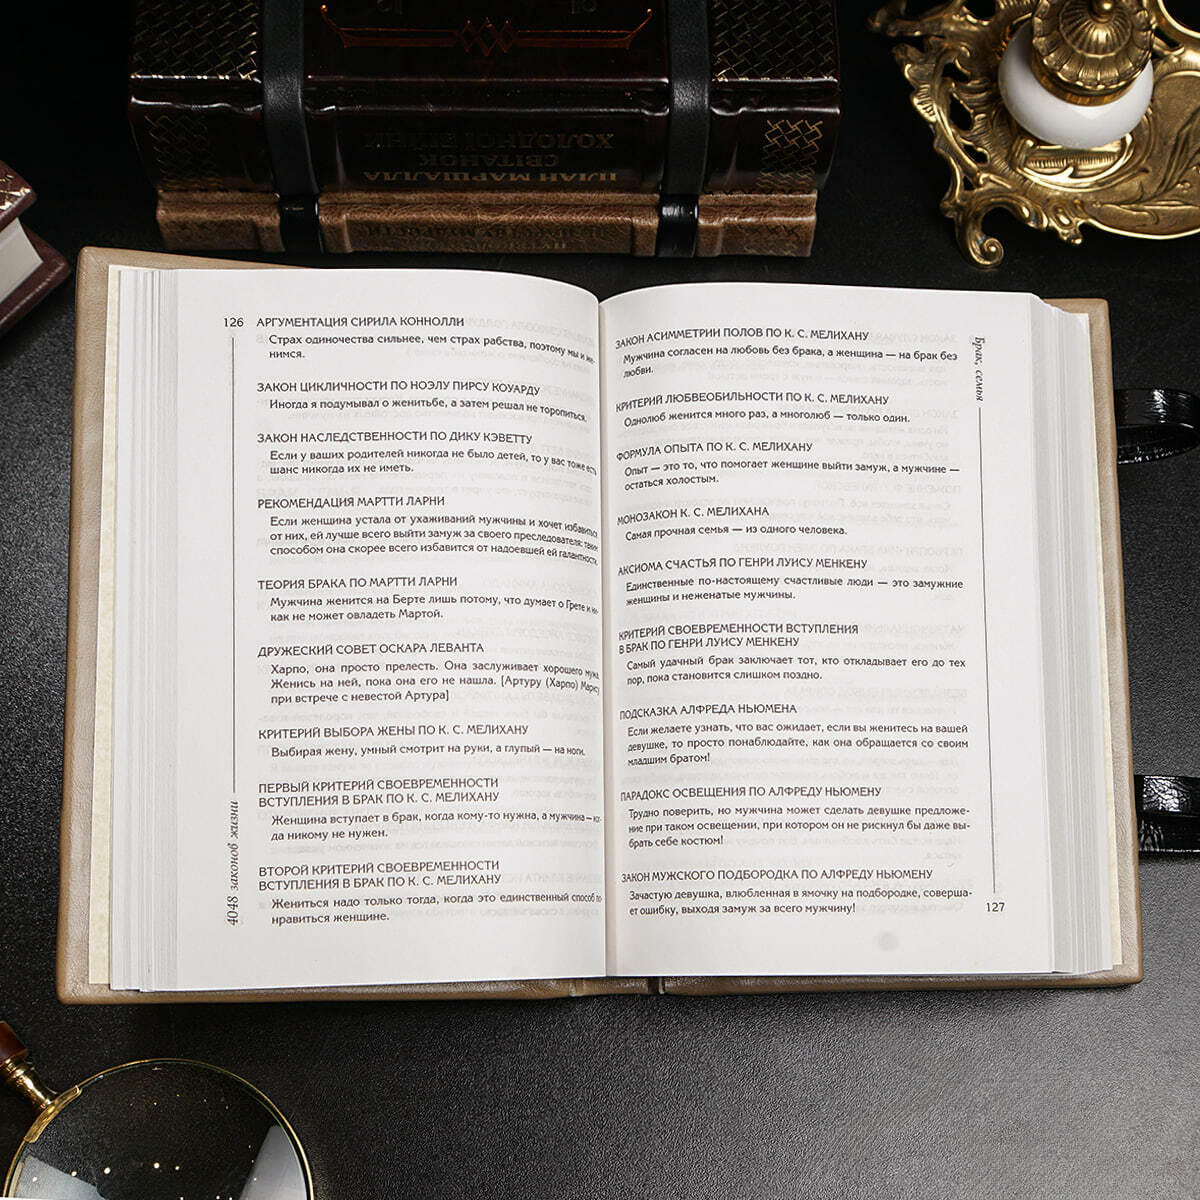 ПЛАН МАРШАЛЛА
СВІТАНОК
ХОЛОДНОЇ ВІЙНИ
126 АРГУМЕНТАЦИЯ СИРИЛА КОННОЛЛИ
Страх одиночества сильнее, чем страх рабства, поэтому мы и же-
нимся.
ЗАКОН ЦИКЛИЧНОСТИ ПО НОЭЛУ ПИРСУ КОУАРДУ
Иногда я подумывал о женитьбе, а затем решал не торопиться.
ЗАКОН НАСЛЕДСТВЕННОСТИ ПО ДИКУ КЭВЕТТУ
Если у ваших родителей никогда не было детей, то у вас тоже есть
шанс никогда их не иметь.
РЕКОМЕНДАЦИЯ МАРТТИ ЛАРНИ
Если женщина устала от ухаживаний мужчины и хочет избавиться
от них, ей лучше всего выйти замуж за своего преследователя: таким
способом она скорее всего избавится от надоевшей ей галантности.
ТЕОРИЯ БРАКА ПО МАРТТИ ЛАРНИ
Мужчина женится на Берте лишь потому, что думает о Грете и ни-
как не может овладеть Мартой.
ДРУЖЕСКИЙ СОВЕТ ОСКАРА ЛЕВАНТА
Харпо, она просто прелесть. Она заслуживает хорошего мужа.
Женись на ней, пока она его не нашла. [Артуру (Харпо) Марксу
при встрече с невестой Артура]
КРИТЕРИЙ ВЫБОРА ЖЕНЫ ПО К. С. МЕЛИХАНУ
Выбирая жену, умный смотрит на руки, а глупый — на ноги.
ПЕРВЫЙ КРИТЕРИЙ СВОЕВРЕМЕННОСТИ
ВСТУПЛЕНИЯ В БРАК ПО К. С. МЕЛИХАНУ
Женщина вступает в брак, когда кому-то нужна, а мужчина — ког-
да никому не нужен.
ВТОРОЙ КРИТЕРИЙ СВОЕВРЕМЕННОСТИ
ВСТУПЛЕНИЯ В БРАК ПО К. С. МЕЛИХАНУ
Жениться надо только тогда, когда это единственный способ по-
нравиться женщине.
4048 законов жизни
ЗАКОН АСИММЕТРИИ ПОЛОВ ПО К. С. МЕЛИХАНУ
Мужчина согласен на любовь без брака, а женщина — на брак без
любви.
КРИТЕРИЙ ЛЮБВЕОБИЛЬНОСТИ ПО К. С. МЕЛИХАНУ
Однолюб женится много раз, а многолюб — только один.
ФОРМУЛА ОПЫТА ПО К. С. МЕЛИХАНУ
Опыт — это то, что помогает женщине выйти замуж, а мужчине —
остаться холостым.
МОНОЗАКОН К. С. МЕЛИХАНА
Самая прочная семья — из одного человека.
АКСИОМА СЧАСТЬЯ ПО ГЕНРИ ЛУИСУ МЕНКЕНУ
Единственные по-настоящему счастливые люди — это замужние
женщины и неженатые мужчины.
КРИТЕРИЙ СВОЕВРЕМЕННОСТИ ВСТУПЛЕНИЯ
В БРАК ПО ГЕНРИ ЛУИСУ МЕНКЕНУ
Самый удачный брак заключает тот, кто откладывает его до тех
пор, пока становится слишком поздно.
ПОДСКАЗКА АЛФРЕДА НЬЮМЕНА
Если желаете узнать, что вас ожидает, если вы женитесь на вашей
девушке, то просто понаблюдайте, как она обращается со своим
младшим братом!
ПАРАДОКС ОСВЕЩЕНИЯ ПО АЛФРЕДУ НЬЮМЕНУ
Трудно поверить, но мужчина может сделать девушке предложе-
ние при таком освещении, при котором он не рискнул бы даже вы-
брать себе костюм!
ЗАКОН МУЖСКОГО ПОДБОРОДКА ПО АЛФРЕДУ НЬЮМЕНУ
Зачастую девушка, влюбленная в ямочку на подбородке, соверша-
ет ошибку, выходя замуж за всего мужчину!
127
Брак, семья